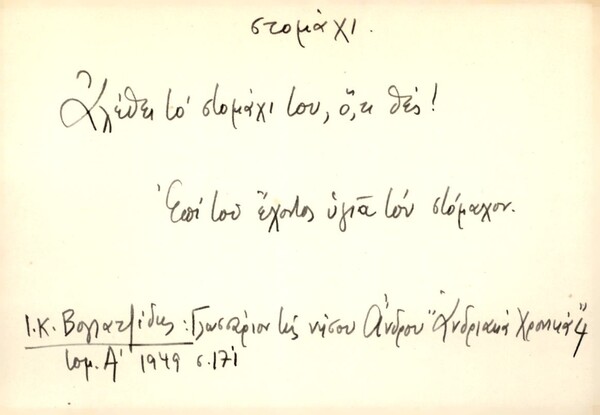 στομάχι.
Ἀλέθει τὸ στομάχι του, ὅ,τι θές!
Ἐπί τοῦ ἔχοντος ὑγιᾶ τόν στόμαχον.
Ι.Κ. Βογιατζίδης: Γλωσσάριον τῆς νήσου Ἄνδρου "Ἀνδριακά Χρονικά"
τομ. Α' 1949 σ. 171